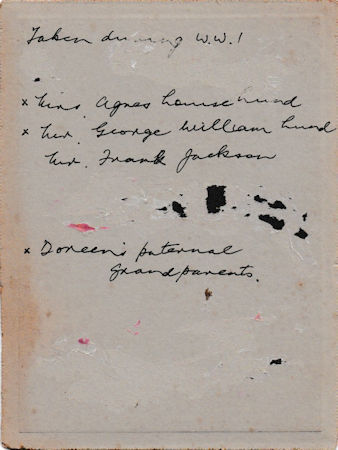 Taken during W.W.1
x Mrs. Agnes Louise Hund
x Mr. George William Hund
Mr. Frank Jackson
x Doreen's paternal
grandparents.